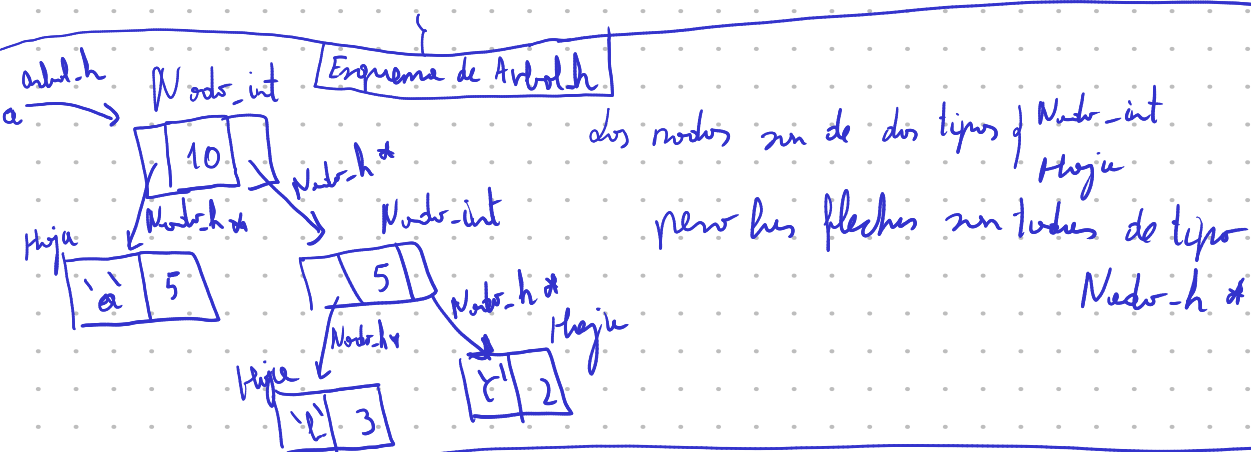 Esquema de Arbol_h
arbol_h
a
Nodo_int
10
Nodo_h *
Nodo_h *
Hoja
'a' 5
Nodo_int
5
Nodo_h *
Nodo_h *
Hoja
3
Hoja
'c' 2
Los nodos son de dos tipos
Nodo_int
Hoja
pero las flechas son todas de tipo
Nodo_h *